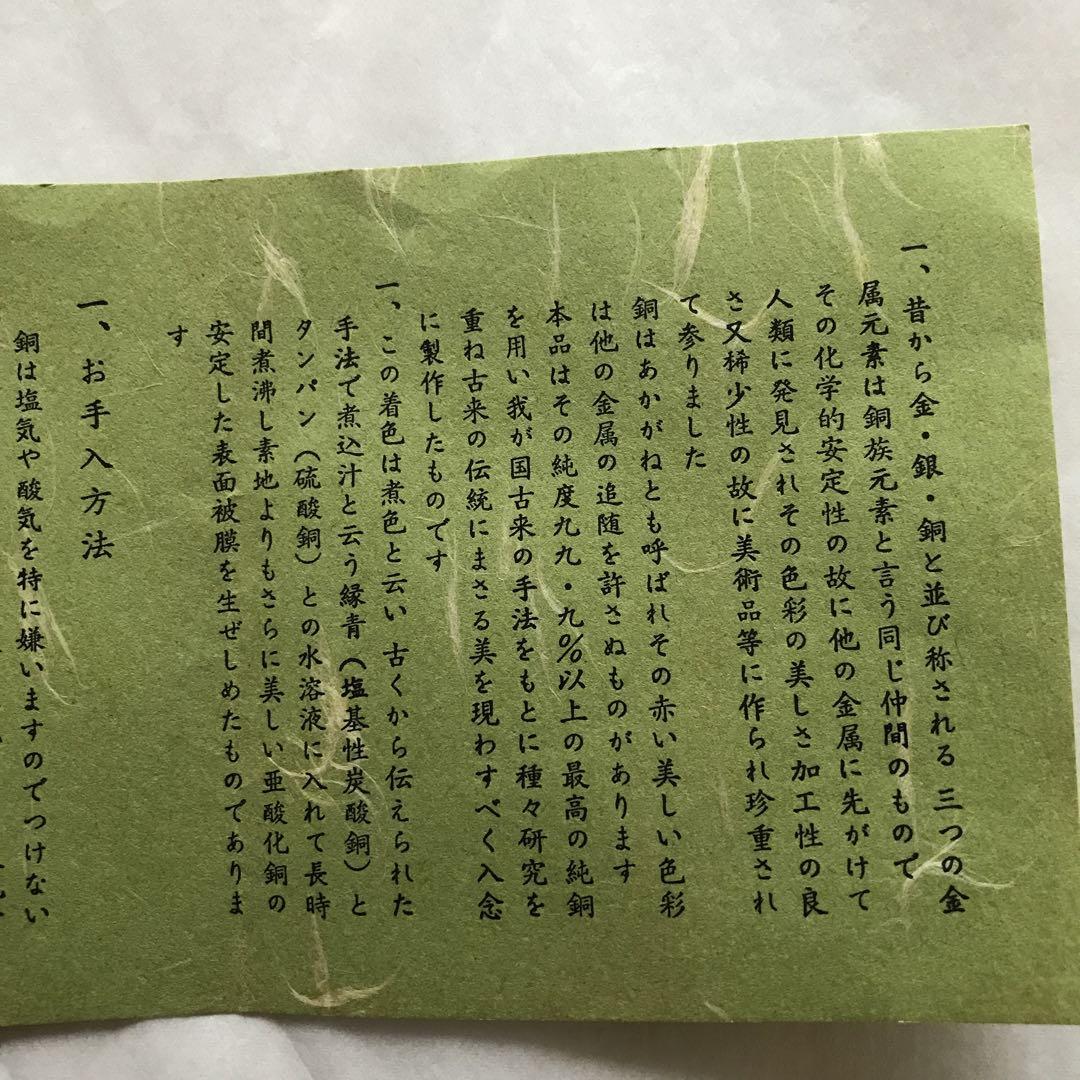 一、昔から金・銀・銅と並び称される三つの金
属元素は銅族元素と言う同じ仲間のもので
その化学的安定性の故に他の金属に先がけて
人類に発見されその色彩の美しさ加工性の良
さ又稀少性の故に美術品等に作られ珍重され
て参りました
銅はあかがねとも呼ばれその赤い美しい色彩
は他の金属の追随を許さぬものがあります
本品はその純度九九・九%以上の最高の純銅
を用い我が国古来の手法をもとに種々研究を
重ね古来の伝統にまさる美を現わすべく入念
に製作したものです
一、この着色は煮色と云い 古くから伝えられた
手法で煮込汁と云う縁青(塩基性炭酸銅)と
タンパン(硫酸銅)との水溶液に入れて長時
間煮沸し素地よりもさらに美しい亜酸化銅の
安定した表面被膜を生ぜしめたものでありま
す
一、お手入方法
銅は塩気や酸気を特に嫌いますのでつけない